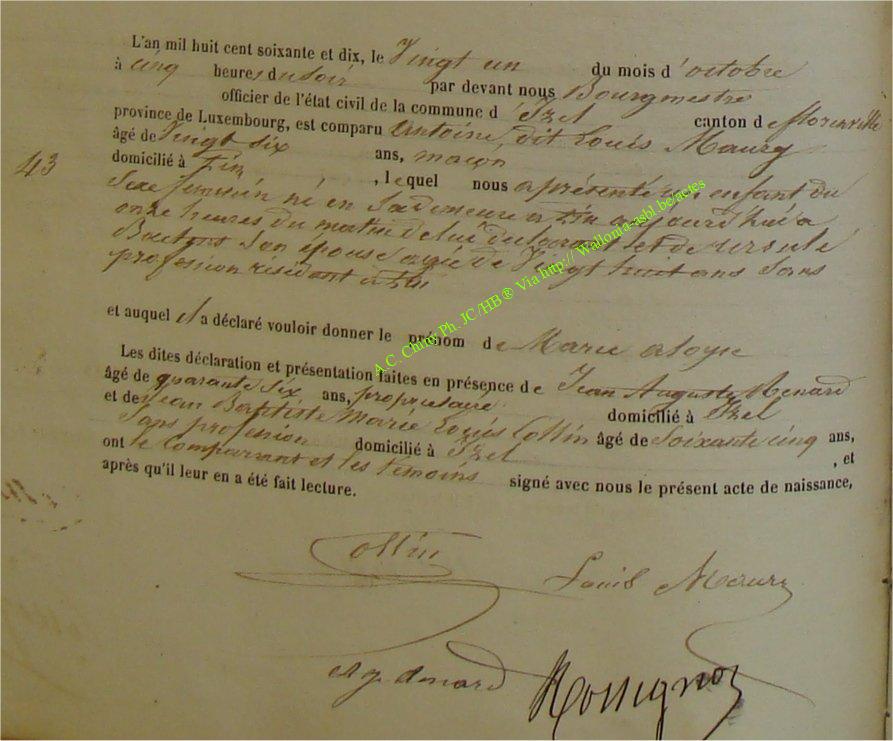 L'an mil huit cent soixante et dix, le Vingt un du mois d'octobre
à cinq heures du soir par devant nous Bourgmestre
officier de l'état civil de la commune d'Izel canton de florenville
province de Luxembourg, est comparu Antoine, dit Louis Maury
âgé de Vingt six ans, maçon
43
domicilié à Pin, lequel nous a présenté un enfant du
Sexe féminin né en Sa demeure à Pin aujourd'hui à
onze heures du matin de lui et de ursule
Son épouse agée de Vingt huit ans Sans
profession résidant à Pin
et auquel il a déclaré vouloir donner le prénom de Marie aloyse
Les dites déclaration et présentation faites en présence de Jean Auguste Renard
âgé de quarante Six ans, propriétaire domicilié à Izel
et de Jean Baptiste Marie Louis Collin âgé de Soixante cinq ans,
Sans profession domicilié à Izel, et
ont le Comparant et les témoins signé avec nous le présent acte de naissance,
après qu'il leur en a été fait lecture.
Collin
Louis Maury
Rossignol
A.C. Chiny Ph. JC/HB® Via http://Wallonia-asbl.be/actes